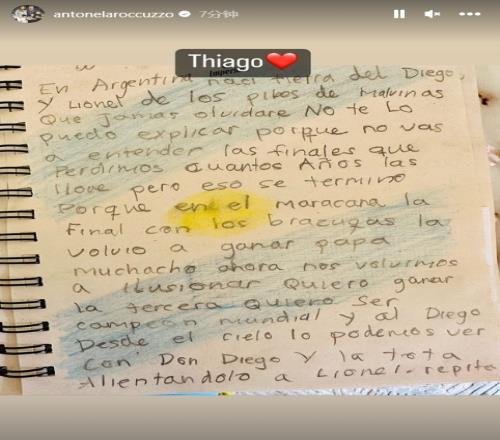 antonelaroccuzzo 7分钟
Thiago
En Argentina naci tierra del Diego,
Y Lionel de los pibes de Malvinas
Que jamas olvidare No te Lo
puedo explicar porque no vas
a entender las finales que
Perdimos cuantos Años las
llove pero eso se termino
Porque en el Maracana la
Final con los brazugas la
volvio a ganar papa
muchacho ahora nos volvimos
a ilusionar Quiero ganar
la tercera Quiero ser
campeon mundial y al Diego
Desde el cielo lo podemos ver
con Don Diego y la tota
Alientandolo a Lionel repita